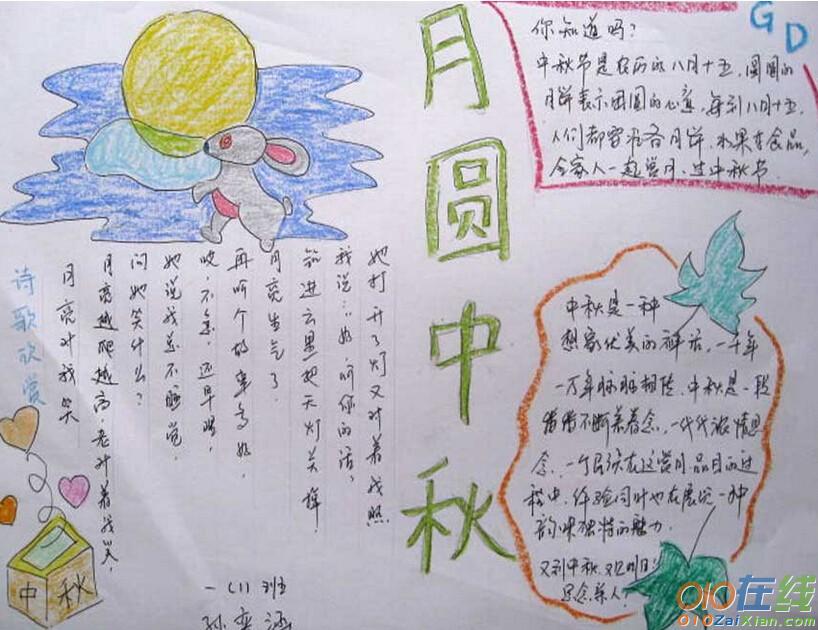 月圆中秋
GD
你知道吗?
中秋节是农历的八月十五,圆圆的
月饼表示团圆的心意,每到八月十五,
人们都要 月饼、水果 食品,
全家人一起赏月,过中秋节.
诗歌欣赏
月亮对我笑
月亮越爬越高,老对着我笑,
问她笑什么?
她说我总不睡觉,
哎,不急,还早哩,
再听个故事多好,
月亮生气了,
钻进云里把天灯关掉,
我说:"好,听你的话,"
她打开了灯又对着我照
中秋是一种
优美的神话,一千年
一万年脉脉相传.中秋是一段
不断 念,一代代浓情思
念,一个民族在这赏月品月的过
程中,体验同时也在展现一种
韵味独特的魅力.
又到中秋,又见明月
思念亲人!
中秋
一(1)班
孙奕涵
010在线
010ZaiXian.com